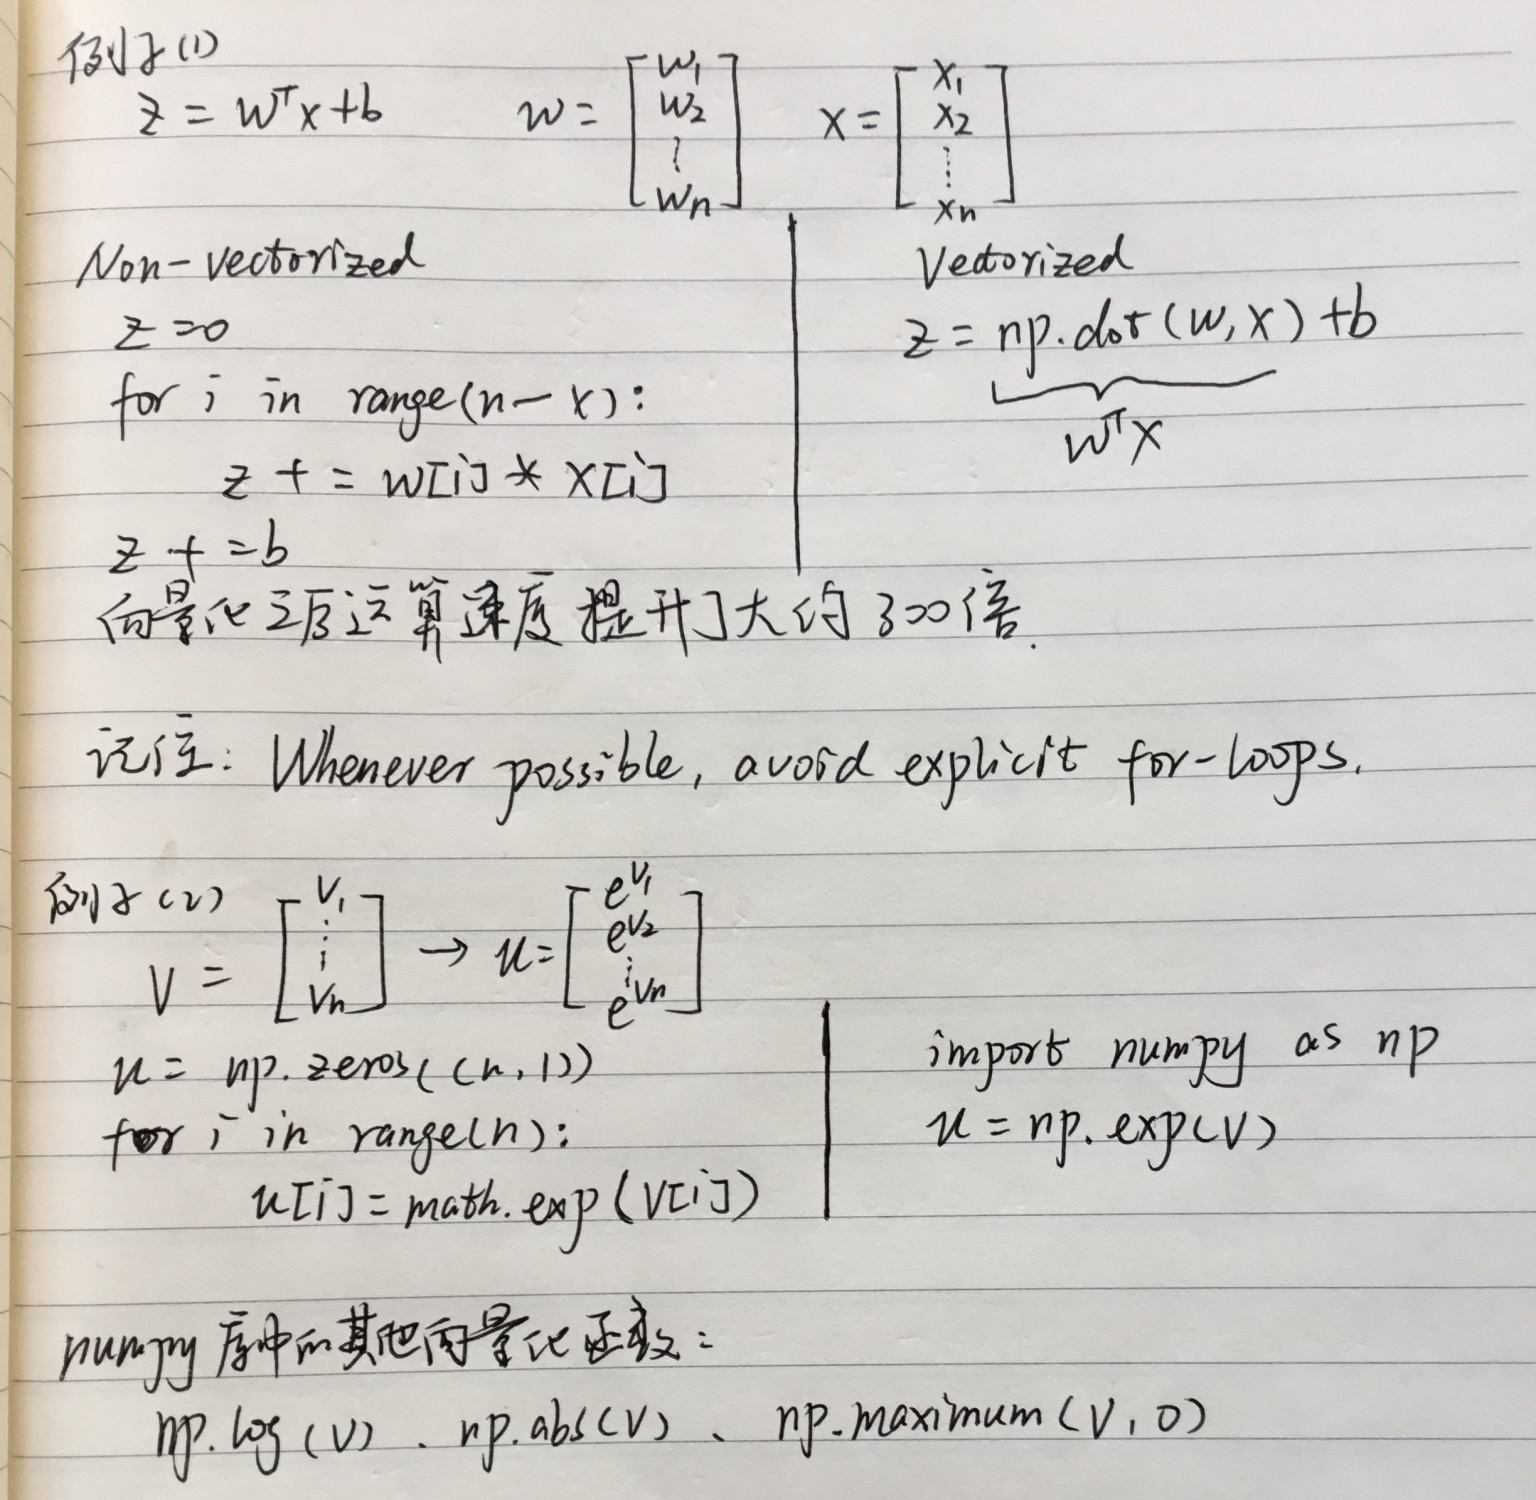 例子(1)
z = wᵀx+b w = [w₁ w₂ ⋮ wₙ] x = [x₁ x₂ ⋮ xₙ]
Non-vectorized
z=0
for i in range(n-x):
z += w[i] * x[i]
z +=b
Vectorized
z = np.dot(w,x)+b
wᵀx
向量化之后运算速度提升了大约300倍.
记住: Whenever possible, avoid explicit for-loops.
例子(2)
v = [v₁ ⋮ vₙ] → u= [e^v₁ e^v₂ ⋮ e^vₙ]
u = np.zeros((n,1))
for i in range(n):
u[i]=math.exp(v[i])
import numpy as np
u = np.exp(v)
numpy库中的其他向量化函数:
np.log(v)、np.abs(v)、np.maximum(v,0)